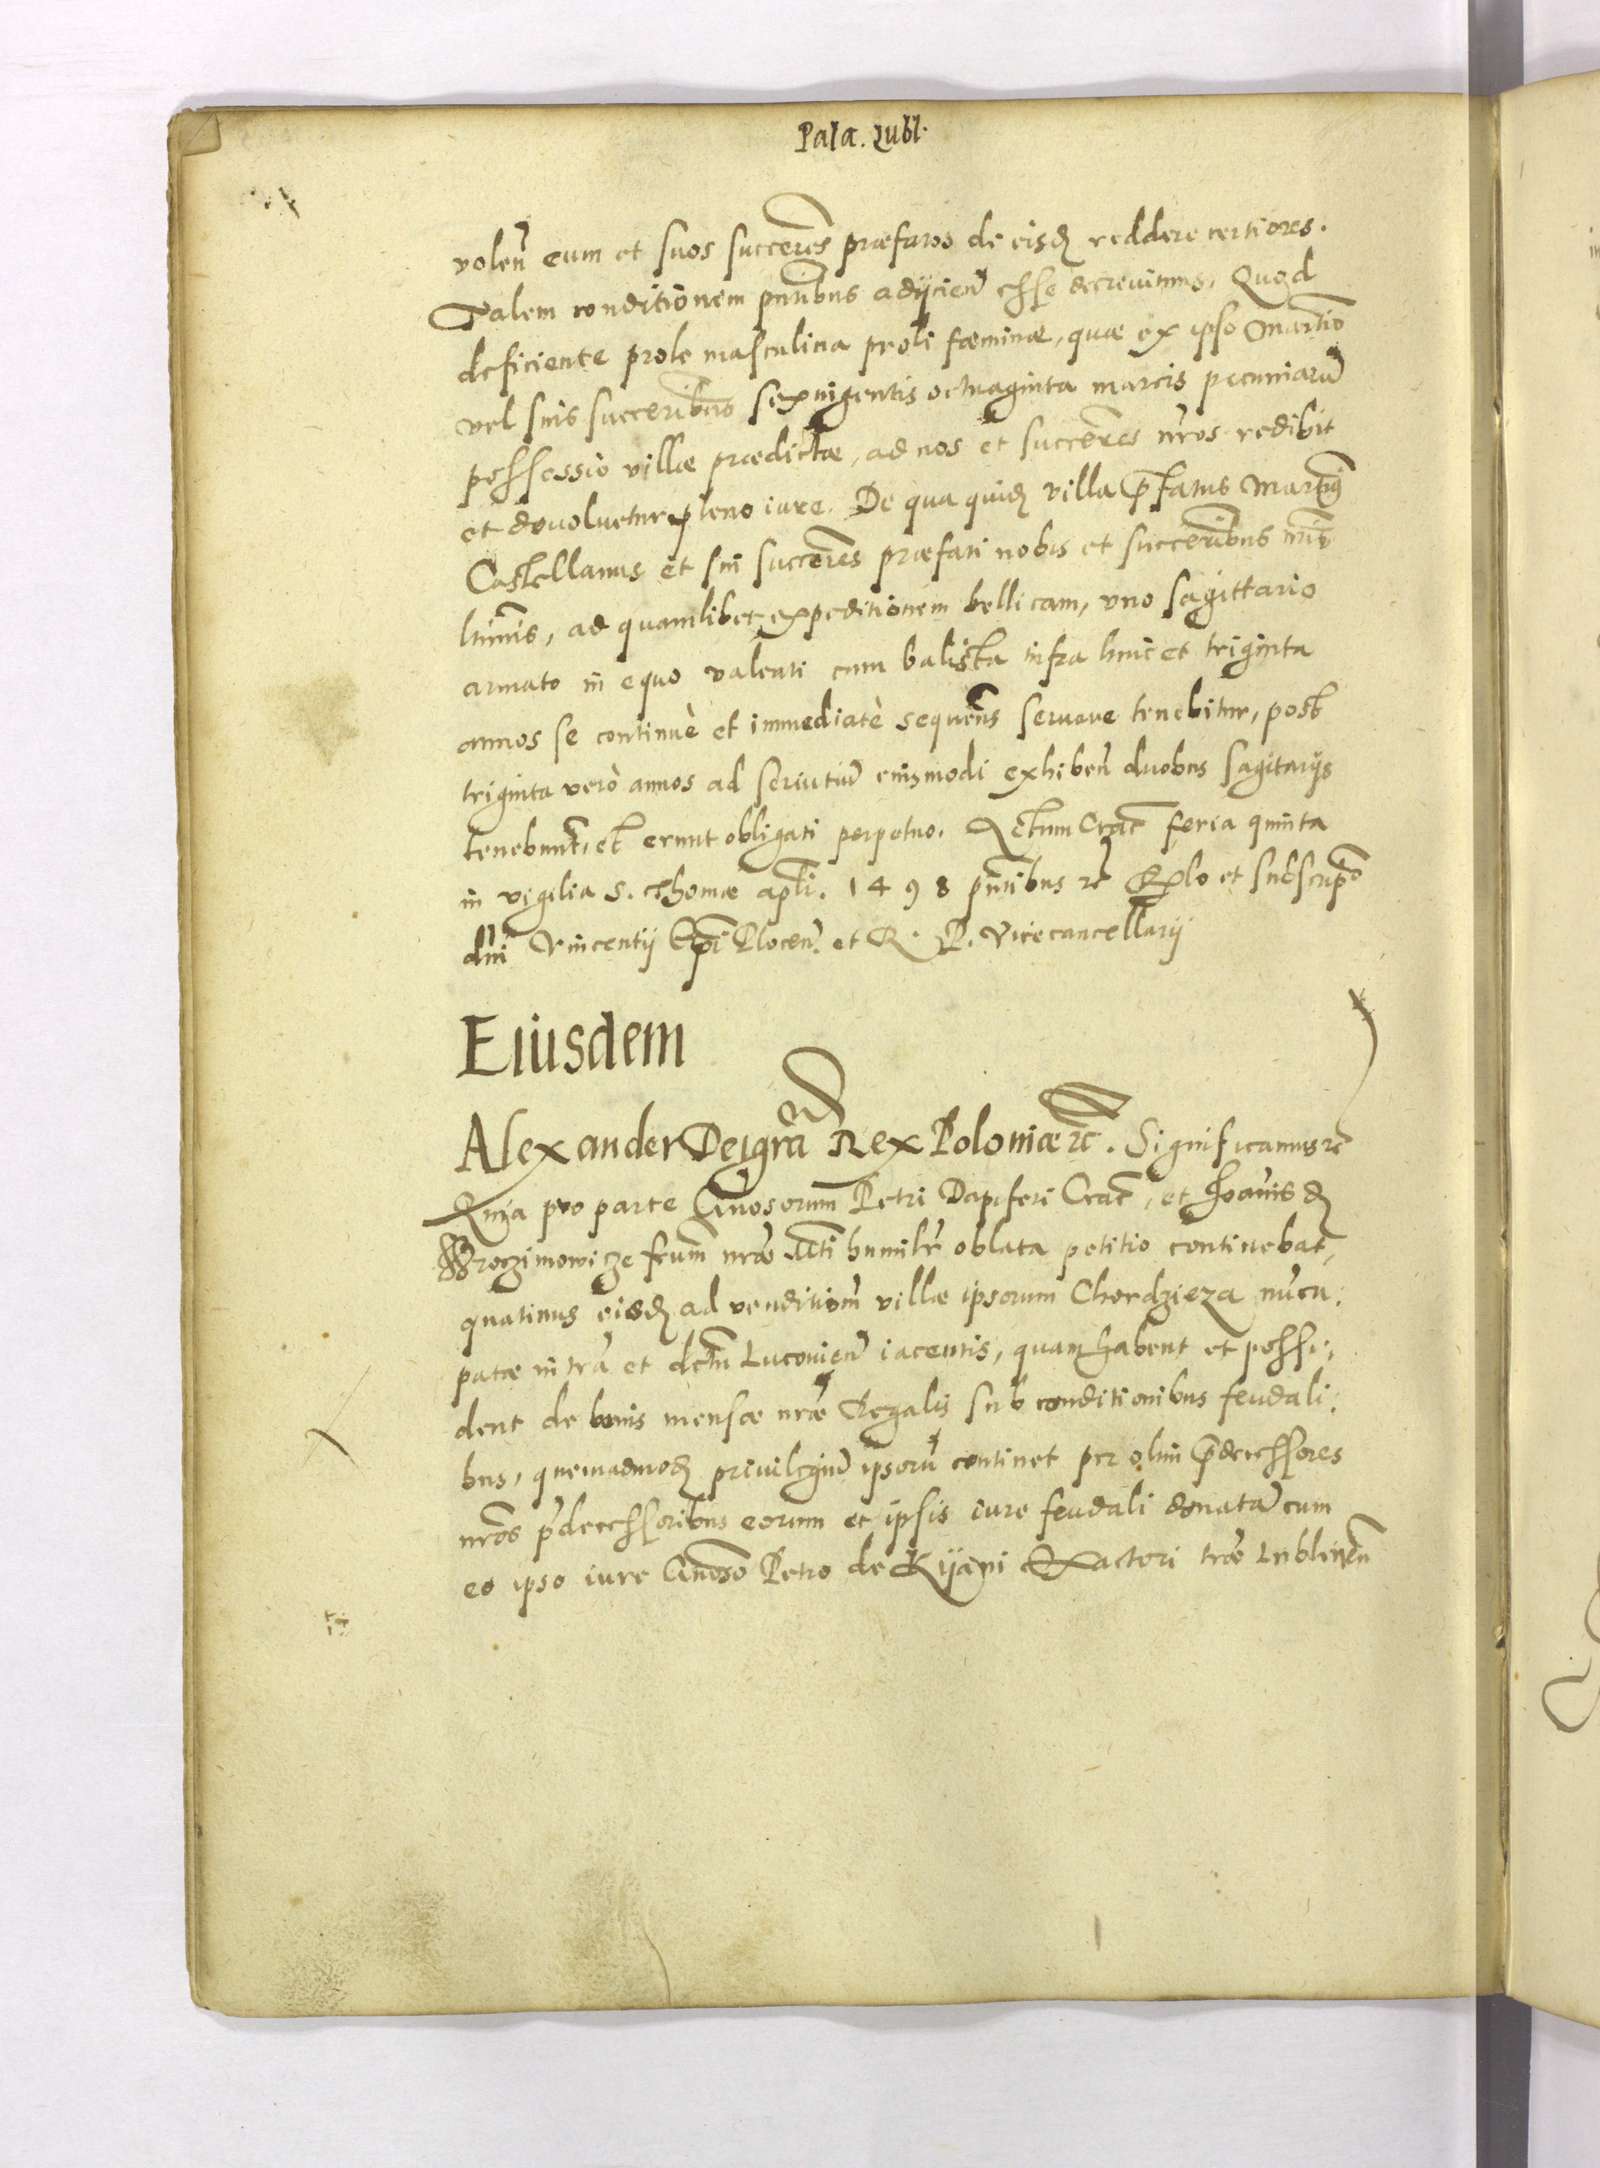 Pala. Lubl.
volen̄ eum et suos succeres præfatos de eisd reddere certiores.
Talem conditionem pn̄tibus adijcien̄ esse decrevimus, Quod
deficiente prole masculina proli fæminæ, quæ ex ipso Martino
vel suis succeribus sexingentis octuaginta marcis pecuniarū
possessio villæ prædictæ, ad nos et succeres nr̄os redibit
et devoluetur pleno iure. De qua quid villa p̄fatus Martin9
Castellanus et sui succeres præfati nobis et succeribus nr̄is
ltimis, ad quamlibet expeditionem bellicam, uno sagittario
armato in equo valenti cum balista infra hinc et triginta
annos se continuè et immediatè sequen̄s seruare tenebitur, post
triginta verò annos ad seruitiū eiusmodi exhiben̄ duobus sagitarijs
tenebunt, et erunt obligati perpetuo. Actum Crac̄ feria quinta
in vigilia S. Thomæ apli. 1498 pn̄tibus rc̄ Rplo et subscripō
dn̄i Vincentij Ep̄i Plocen̄. et R. P. Vicecancellarij
Eiusdem
Alexander Dei gr̄a Rex Poloniæ rc̄. Significamus rc̄
Quia pro parte Gn̄osorum Petri Dapiferi Crac̄, et Joannis d
Wroczimowicze fr̄um nr̄æ Mti humilr̄ oblata petitio continebat,
quatinus eisd ad venditiom̄ villæ ipsorum Chordzieza nūcu,
patæ in tr̄a et dctū Luconien̄ iacentis, quam habent et possi,
dent de bonis mensæ nr̄æ Regalis sub conditionibus feudali,
bus, quemadmod privilegiū ipsorū continet per olim p̄decessores
nr̄os p̄decessoribus eorum et ipsis iure feudali donatā cum
eo ipso iure Gn̄oso Petro de Kijani Exactori tr̄æ Lublinen̄